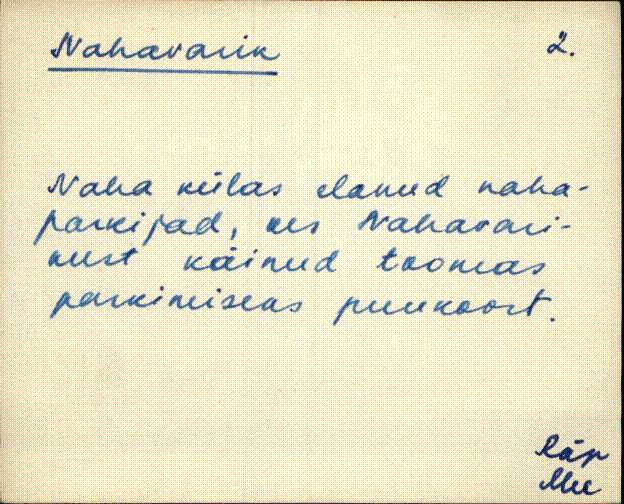 Nahavarik 2.
Naha külas elanud naha-
parkijad, kes Nahavari-
kust käinud toomas
parkimiseks puukoort.
Räp
Mee